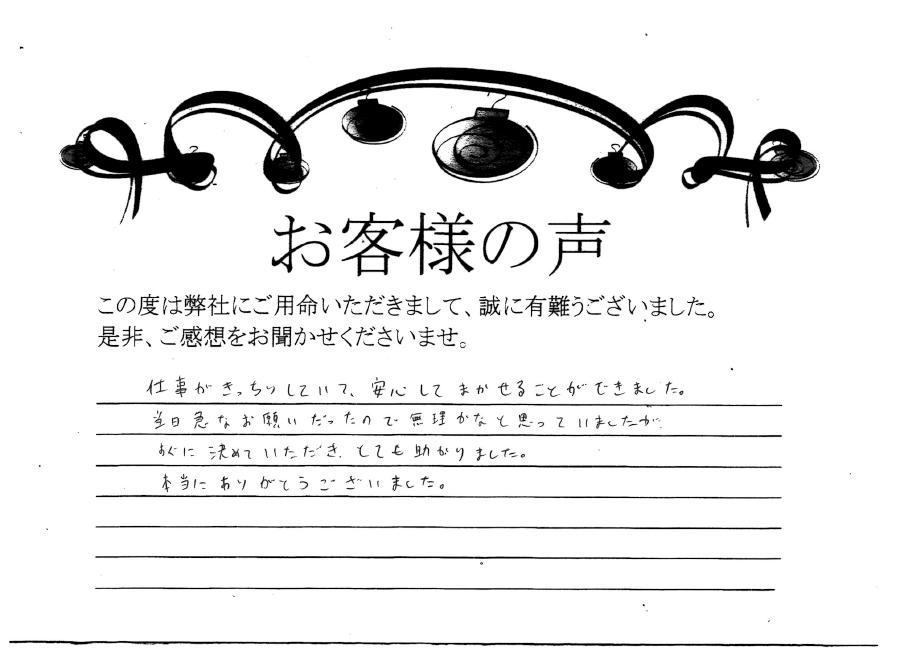 お客様の声
この度は弊社にご用命いただきまして、誠に有難うございました。
是非、ご感想をお聞かせくださいませ。
仕事がきっちりしていて、安心してまかせることができました。
当日急なお願いだったので無理かなと思っていましたが、
すぐに決めていただき、とても助かりました。
本当にありがとうございました。